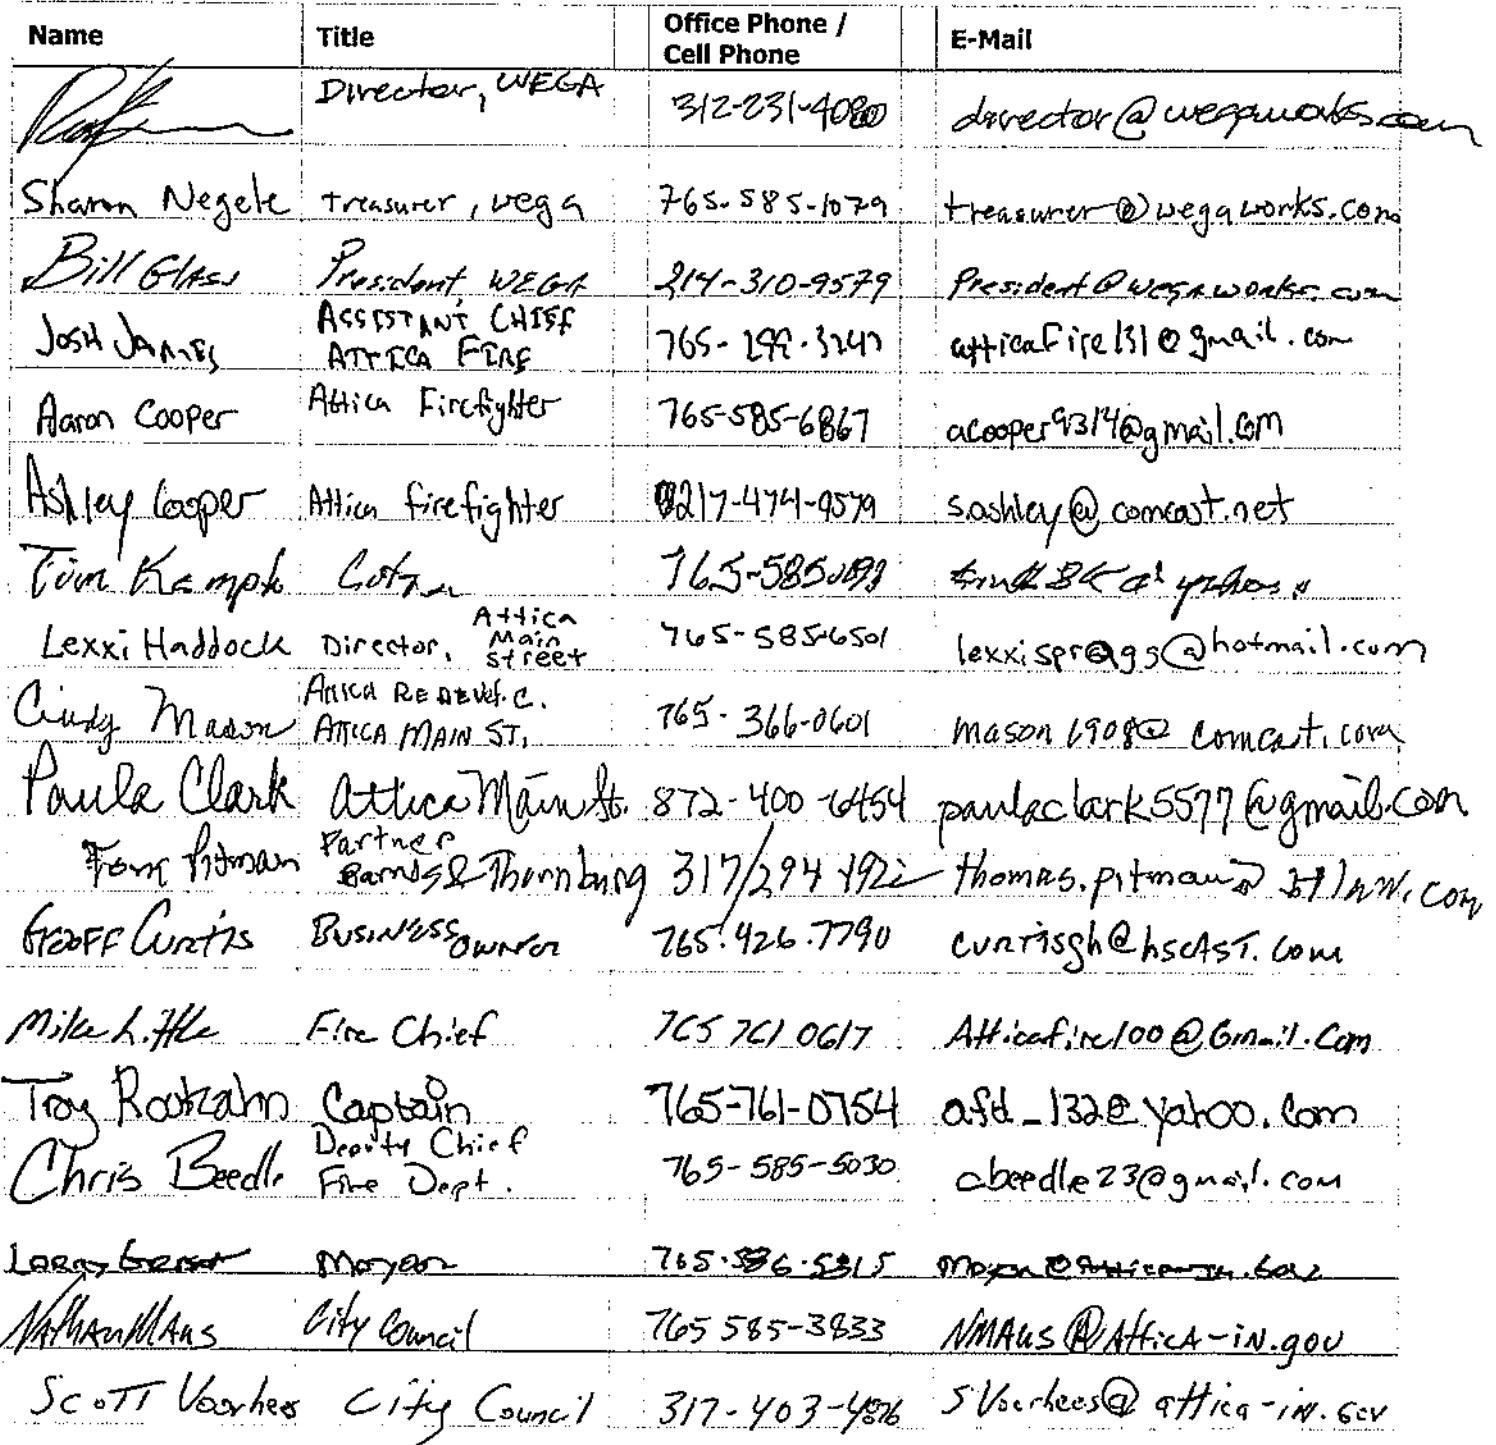 Name Title Office Phone / Cell Phone E-Mail
Director, WEGA 312-231-4080 director@wegaworks.com
Sharon Negele treasurer, wega 765-585-1079 treasurer@wegaworks.com
Bill Glass President WEGA 214-310-9579 President@wegaworks.com
Josh James ASSISTANT CHIEF ATTICA FIRE 765-299-3247 atticafire131@gmail.com
Aaron Cooper Attica Firefighter 765-585-6867 acooper9314@gmail.com
Ashley Cooper Attica firefighter 217-474-9579 sashley@comcast.net
Tim 
Lexxi Haddock Director, Attica Main Street 765-585-6501 lexxispraggs@hotmail.com
Cindy Mason Attica Redevel. C. ATTICA MAIN ST. 765-366-0601 mason1908@comcast.com
Paula Clark Attica Main St. 872-400-6454 paulaclark5577@gmail.com
Tom Pitman Partner Barnes & Thornburg 317/294 thomas.pitman@btlaw.com
Geoff Curtis Business Owner 765.426.7790 curtisgh@hscast.com
Mike Little Fire Chief 765 761 0617 Atticafire100@Gmail.com
Troy Captain 765-761-0754 afd_132@yahoo.com
Chris Beedle Deputy Chief Fire Dept. 765-585-5030 cbeedle23@gmail.com
Larry Mayor 765.586.5315
Nathan Maus City Council 765 585-3833 NMAUS@Attica-IN.gov
Scott Voorhees City Council 317-403- SVoorhees@attica-in.gov